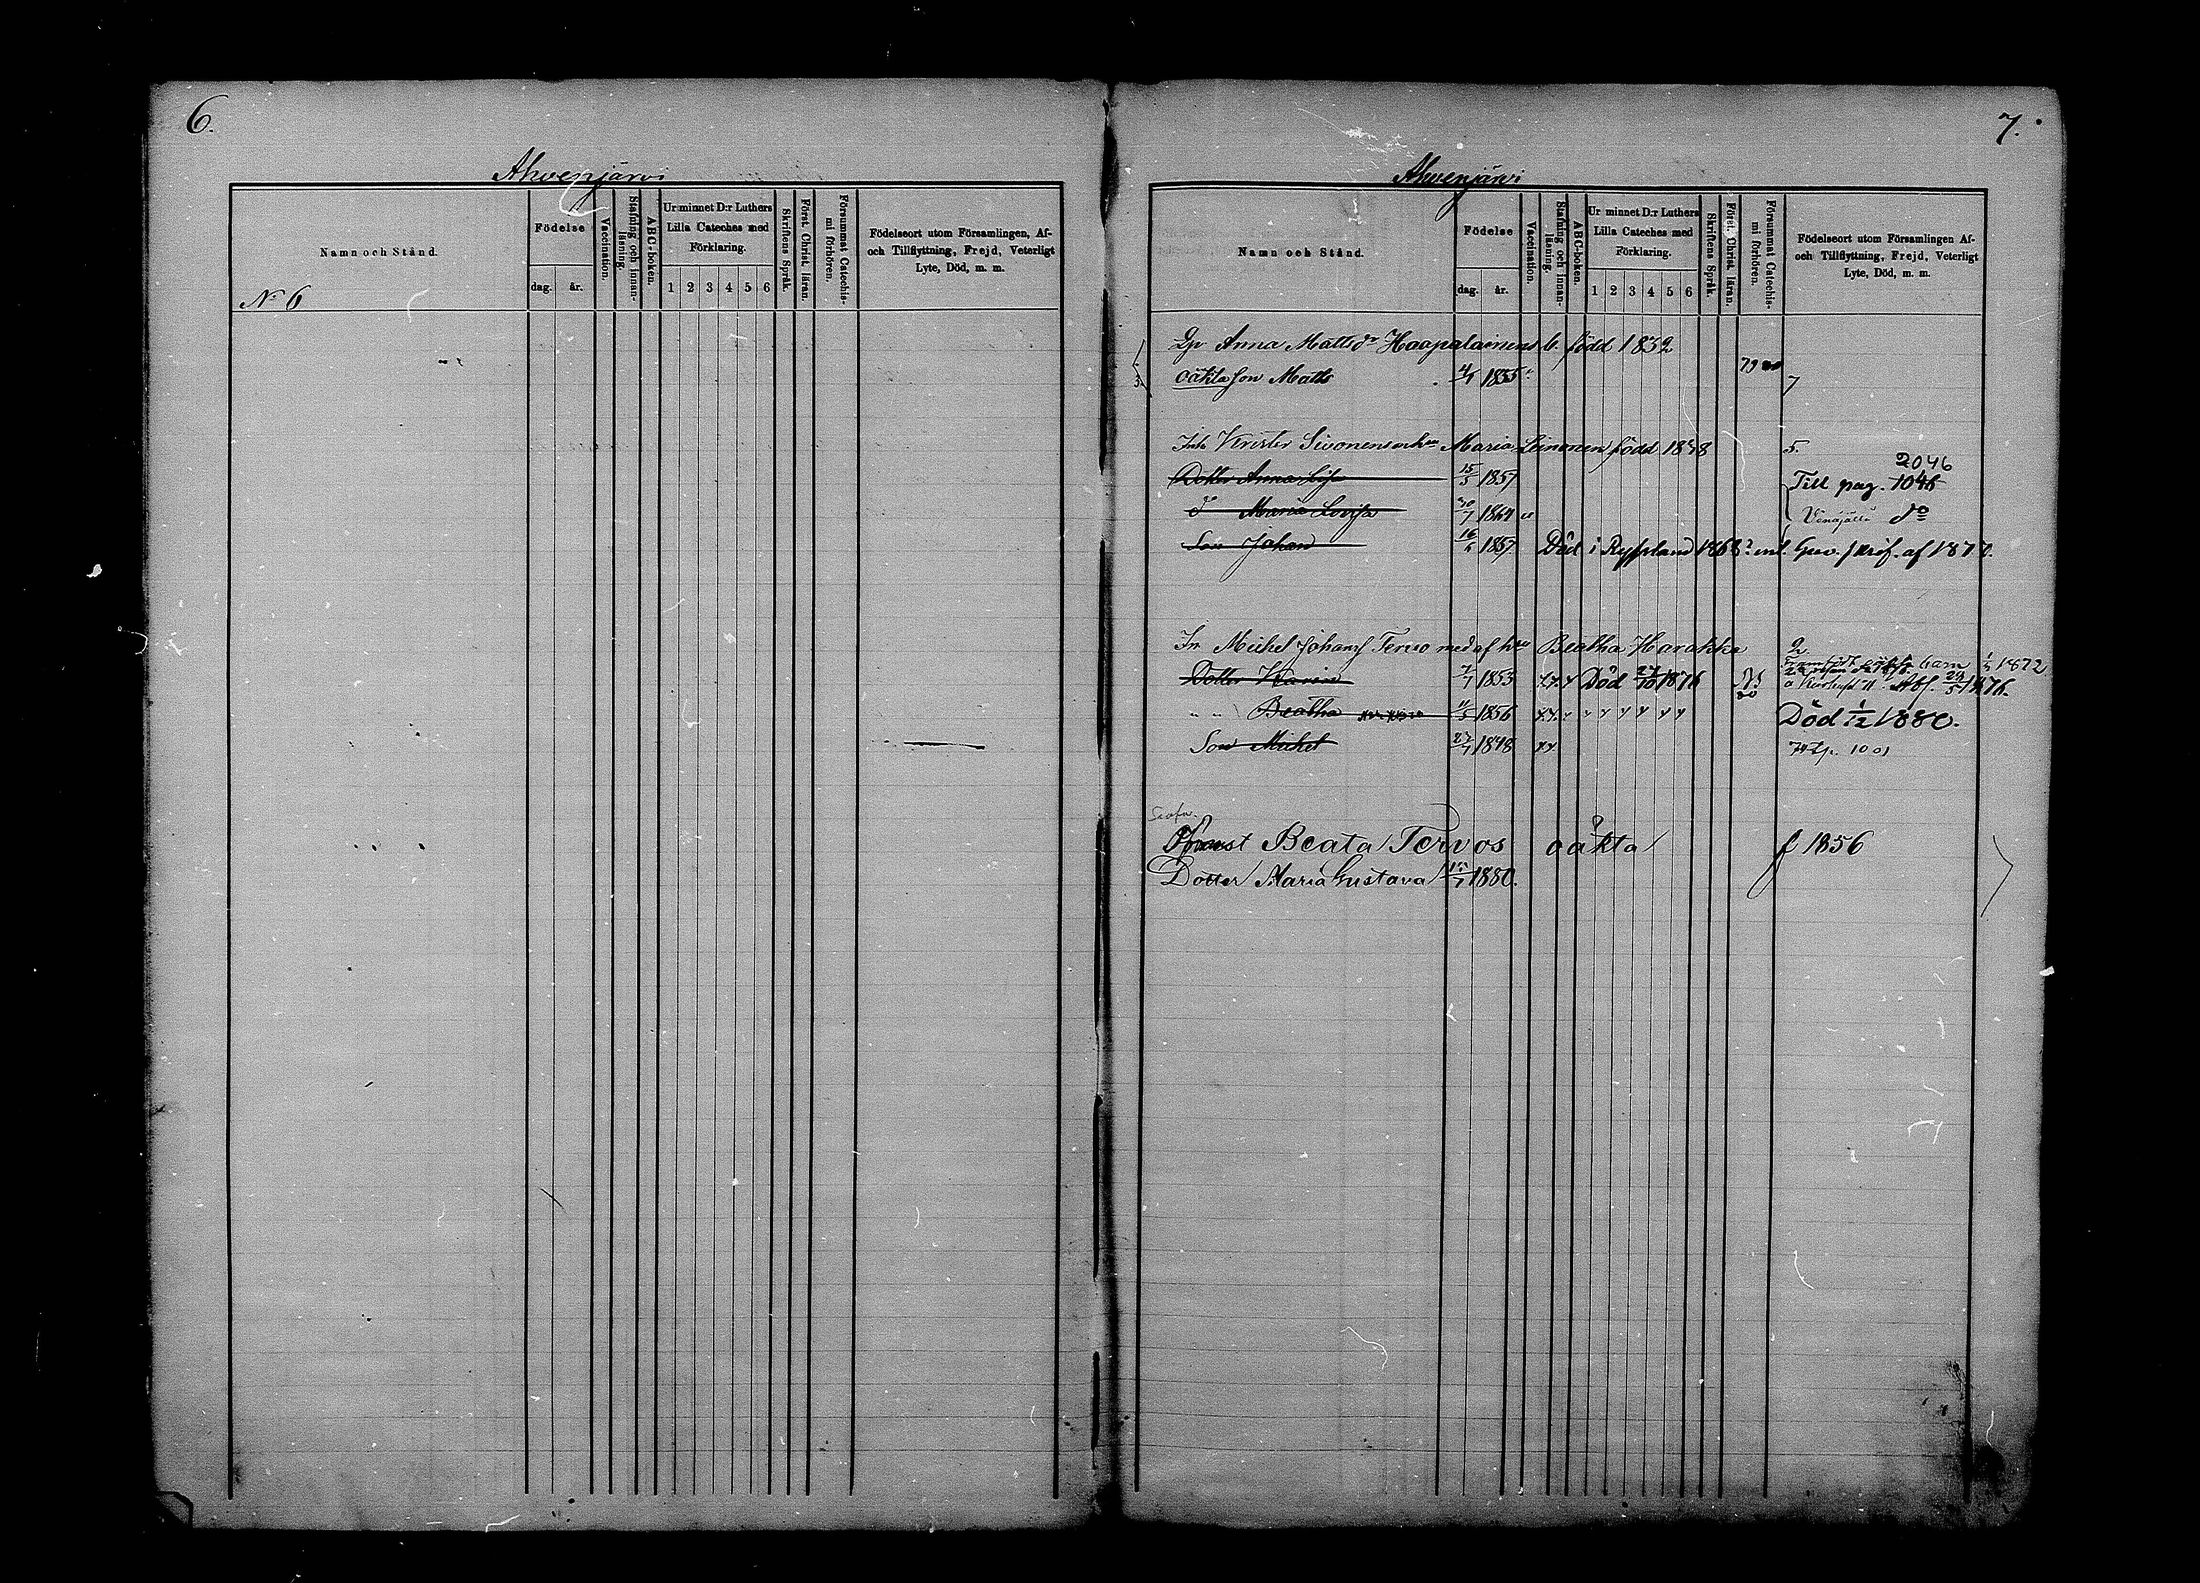 6.
Ahvenjärvi
Namn och Stånd.
Födelse
dag.
år.
Vaccination.
Stafning och innan-
läsning.
ABC-boken.
Ur minnet D:r Luthers
Lilla Cateches med
Förklaring.
1 2 3 4 5 6
Skriftens Språk.
Först. Christ. läran.
Försummat Catechis-
mi förhören.
Födelseort utom Församlingen, Af-
och Tillflyttning, Frejd, Veterligt
Lyte, Död, m. m.
No 6
7.
Ahvenjärvi
Namn och Stånd.
Födelse
dag.
år.
Vaccination.
Stafning och innan-
läsning.
ABC-boken.
Ur minnet D:r Luthers
Lilla Cateches med
Förklaring.
1 2 3 4 5 6
Skriftens Språk.
Först. Christ. läran.
Försummat Catechis-
mi förhören.
Födelseort utom Församlingen Af-
och Tillflyttning, Frejd, Veterligt
Lyte, Död, m. m.
Anna Mattsdr Haapalainens b. född 1832
oäkta son Matts 4/1 1855 79 7
Inh Krister Sivonens enka Maria Leinonen född 1828 5.
2046
Dotter Anna Lisa 15/5 1857 Till pag. 1046
d Maria Lovisa 1864 do
Son Johan 16/5 1857 Död i Ryssland 1868? enl. Guv. skrif. af 1877.
In Michel Johans Tervo med af hu Beatha Harakka 2
barn 1872
Dotter Karin 7/7 1853 Död 27/10 1876 Abs. 29/5 1876.
" " Beatha 11/5 1856 Död 1/12 1880.
Son Michel 27/7 1848 1001
Beata Tervos oäkta f 1856
Dotter Maria Gustava 1880.